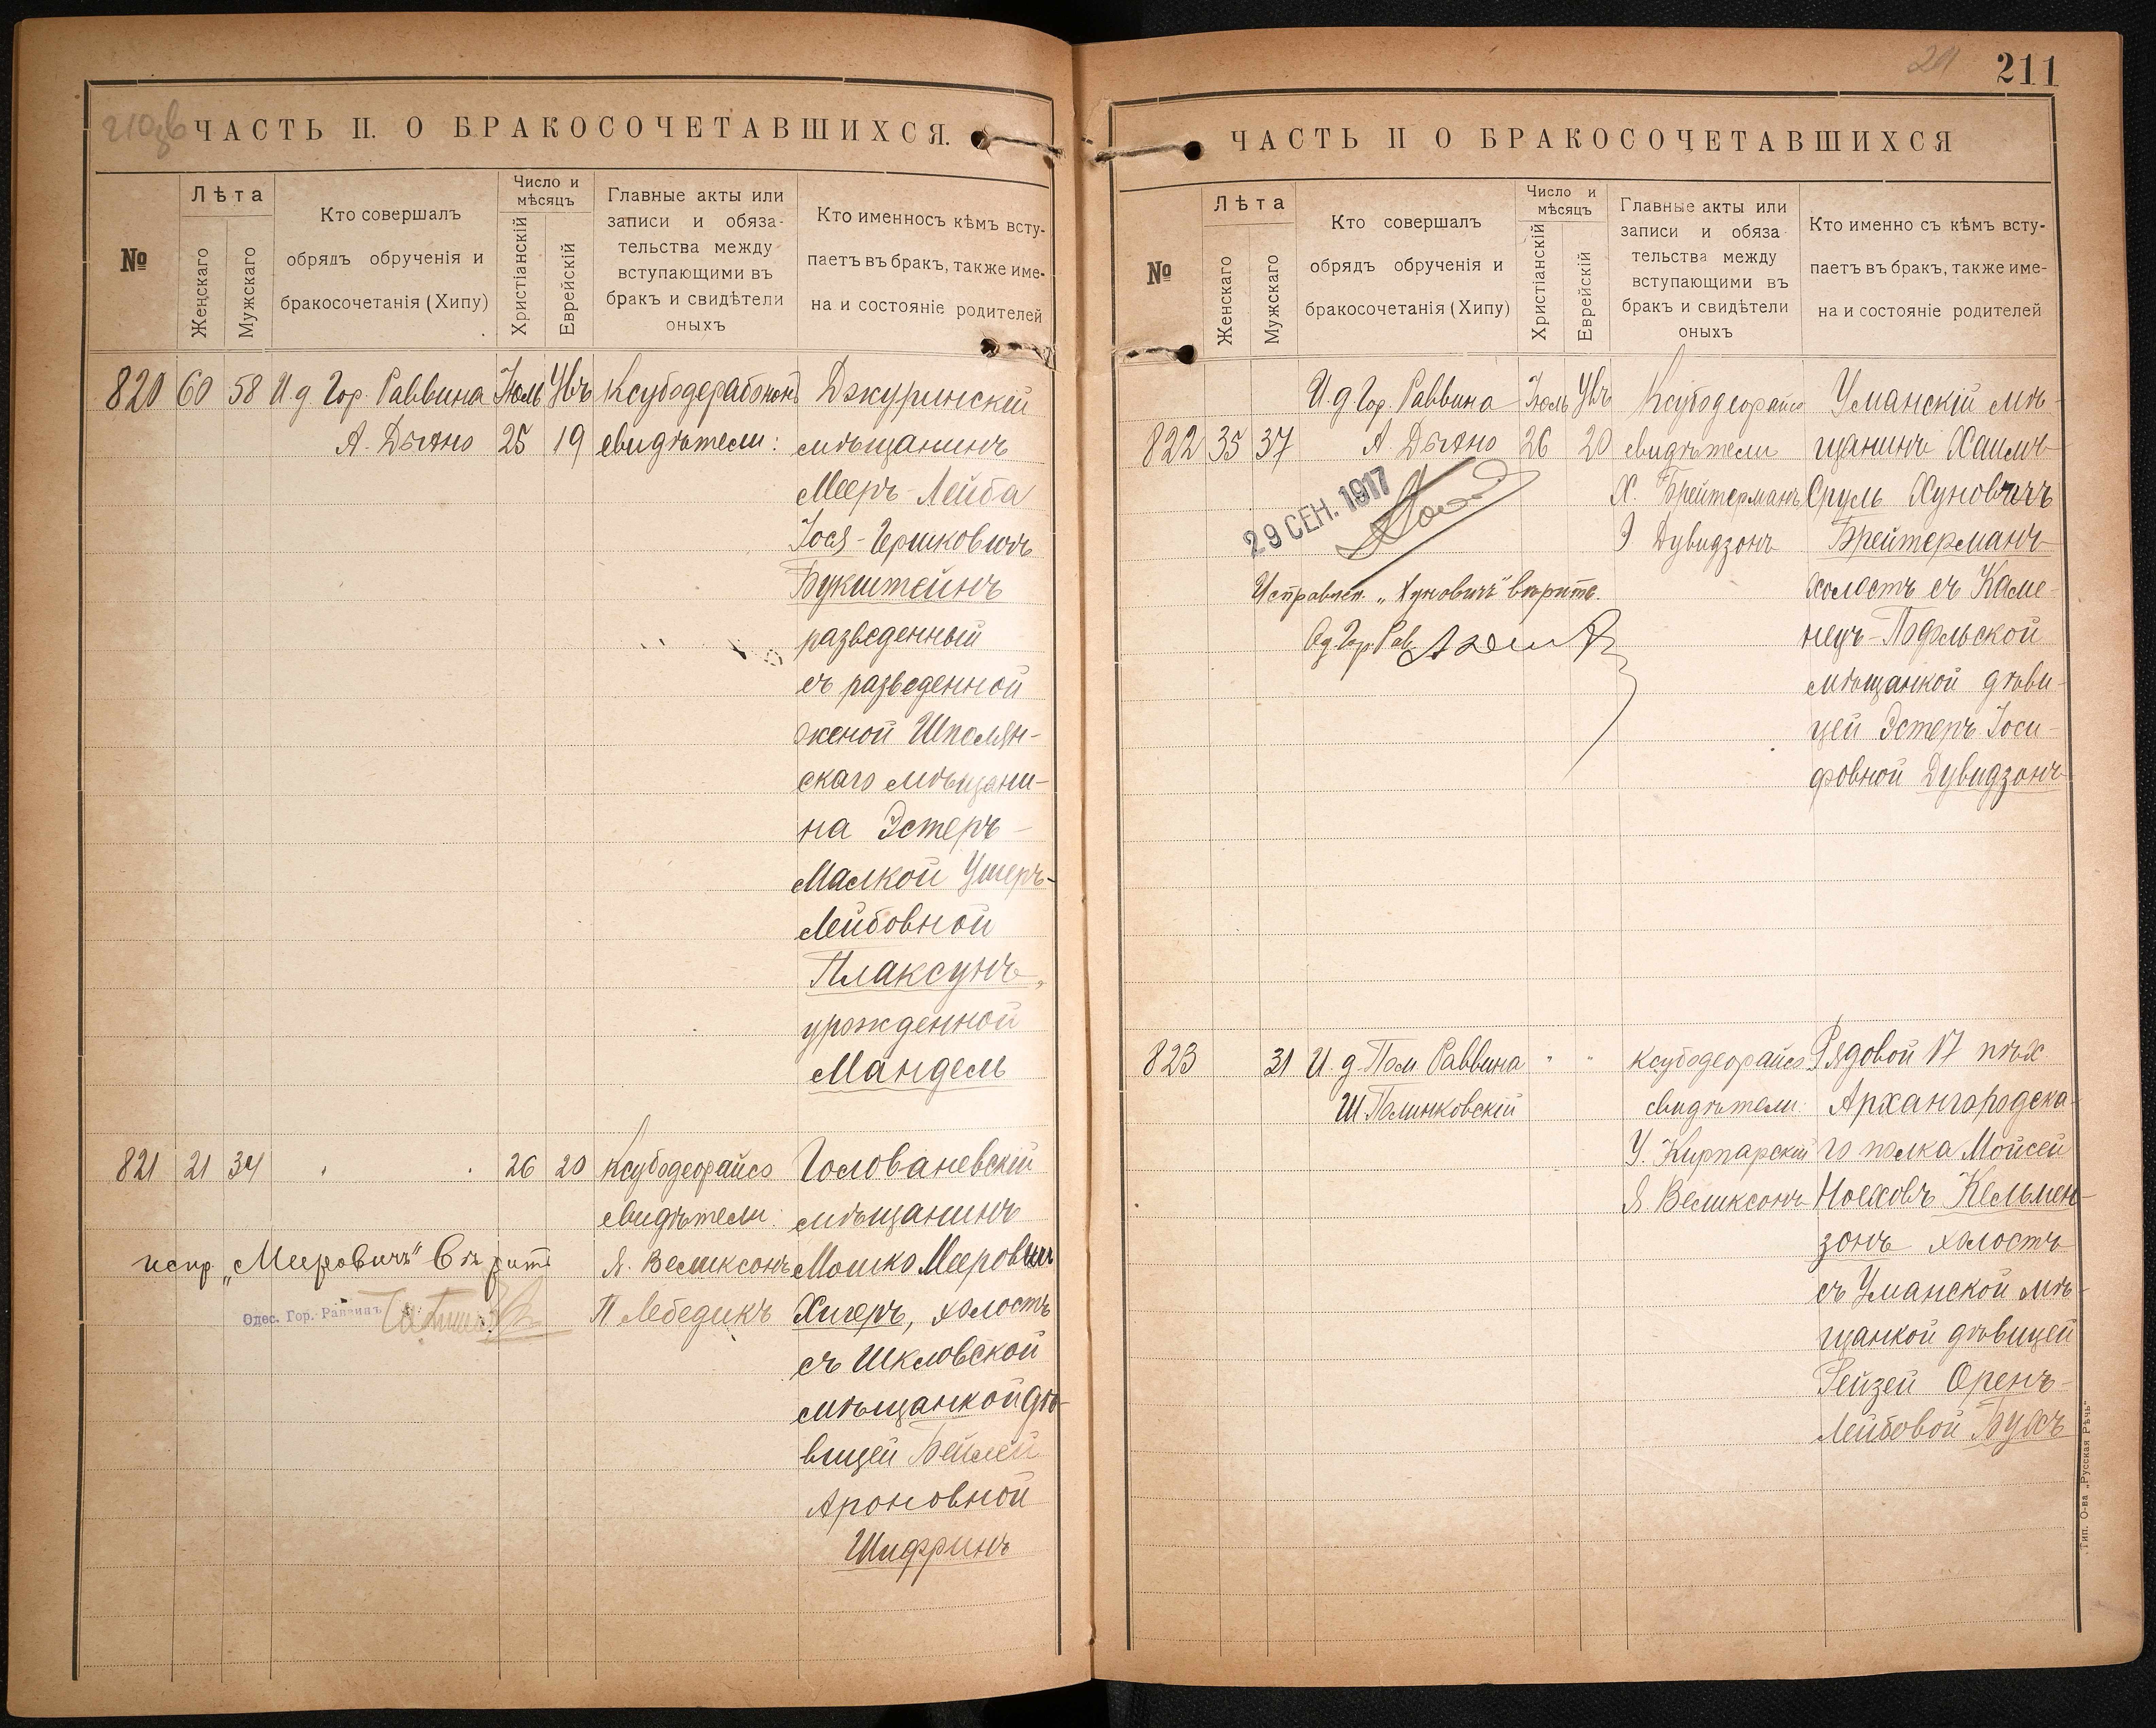 ЧАСТЬ II. О БРАКОСОЧЕТАВШИХСЯ.
№
Лѣта
Женскаго
Мужскаго
Кто совершалъ
обрядъ обрученія и
бракосочетанія (Хипу)
Число и
мѣсяцъ
Христіанскій
Еврейскій
Главные акты или
записи и обяза-
тельства между
вступающими въ
бракъ и свидѣтели
оныхъ
Кто именно съ кѣмъ всту-
паетъ въ бракъ, также име-
на и состояніе родителей
820 60 58 И. д. Гор. Раввина Іюль Увъ
А. Дыхно 25 19 свидѣтели:
Джуринскій
мѣщанинъ
Мееръ-Лейба
Іося-Гершковичъ
Букштейнъ
разведенный
съ разведенной
женой Шполян-
скаго мѣщани-
на Эстеръ-
Малкой Ушеръ-
Лейбовной
Плаксунъ,
урожденной
Мандель
821 21 34 26 20 Ксубодеорайсо
свидѣтели:
Я. Великсонъ
П Лебедикъ
Голованевскій
мѣщанинъ
Мошко Мееровичъ
Хигеръ, холостъ
съ Шкловской
мѣщанкой дѣ-
вицей Бейлей
Ароновной
Шифринъ
испр. „Мееровичъ" вѣрить
Одес. Гор. Раввинъ
211
ЧАСТЬ II О БРАКОСОЧЕТАВШИХСЯ
№
Лѣта
Женскаго
Мужскаго
Кто совершалъ
обрядъ обрученія и
бракосочетанія (Хипу)
Число и
мѣсяцъ
Христіанскій
Еврейскій
Главные акты или
записи и обяза
тельства между
вступающими въ
бракъ и свидѣтели
оныхъ
Кто именно съ кѣмъ всту-
паетъ въ бракъ, также име-
на и состояніе родителей
И. д. Гор. Раввина Іюль Увъ Ксубодеорайсо
822 35 37 А. Дыхно 26 20 свидѣтели
Х. Брейтерманъ
Э Дувидзонъ
29 СЕН. 1917
Исправлен. „Хуновичъ" вѣрить.
Од. Гор. Рав.
Уманскій мѣ-
щанинъ Хаимъ-
Сруль Хуновичъ
Брейтерманъ
холостъ съ Каме-
нецъ-Подольской
мѣщанкой дѣви-
цей Эстеръ Іоси-
фовной Дувидзонъ
823 31 И. д. Пом. Раввина " " Ксубодеорайсо
Ш Полинковскій свидѣтели:
У. Кирпарскій
Я Великсонъ
Рядовой 17 пѣх
Архангородска-
го полка Мойсей
Ноеховъ Кельмен-
зонъ холостъ
съ Уманской мѣ-
щанкой дѣвицей
Рейзей Оренъ-
Лейбовой Бухъ
Тип. О-ва „Русская Рѣчь"